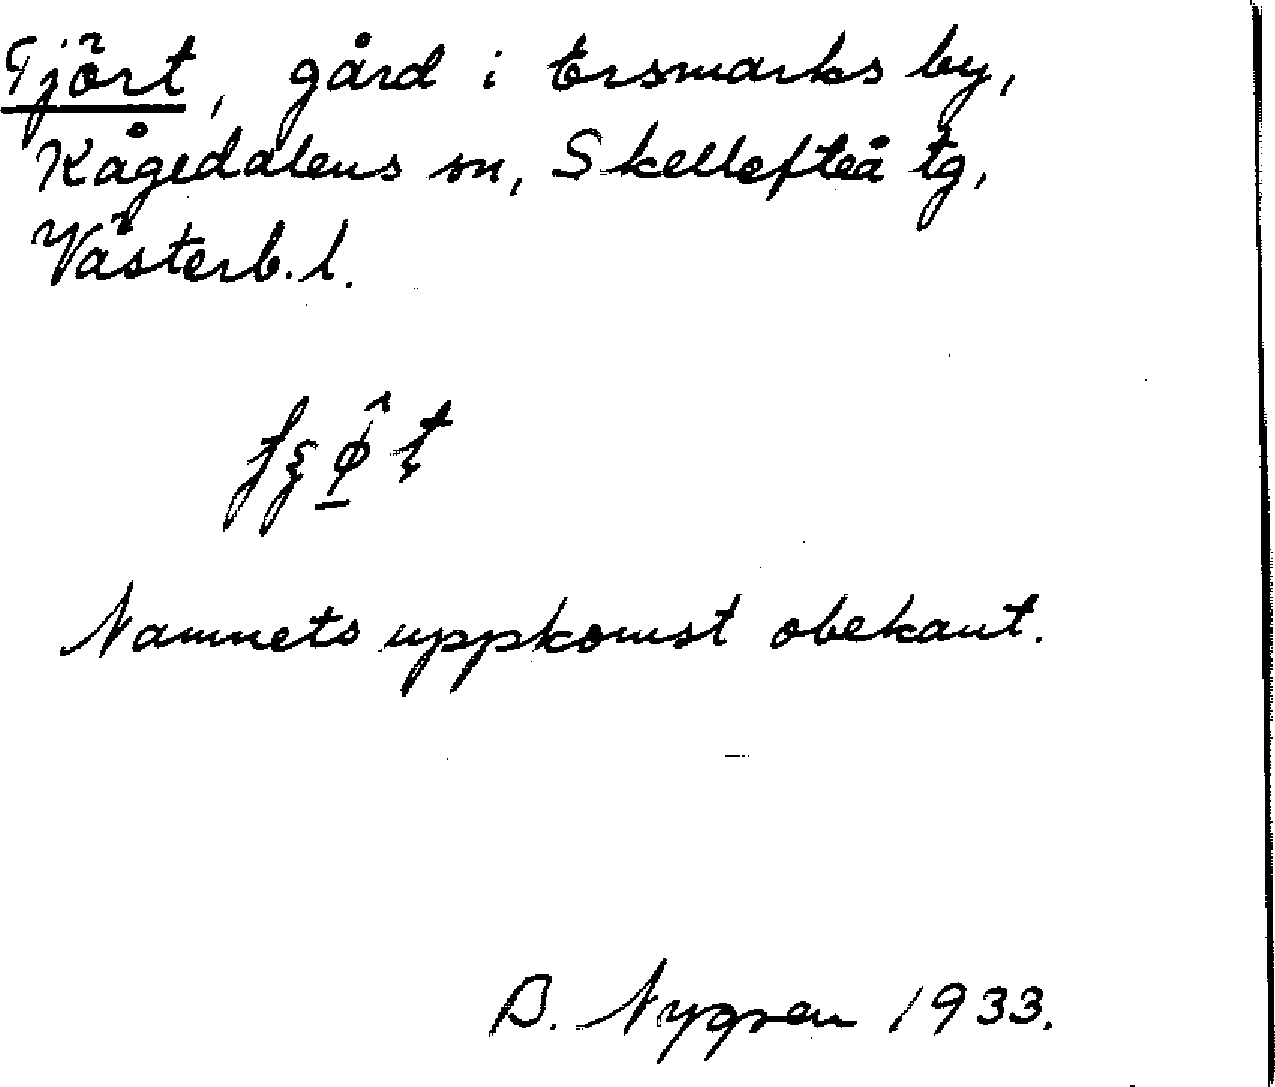 Tjört, gård i Ersmarks by,
Kågedalens sn, Skellefteå tg,
Västerb. l.
Namnets uppkomst obekant.
B. Nygren 1933.